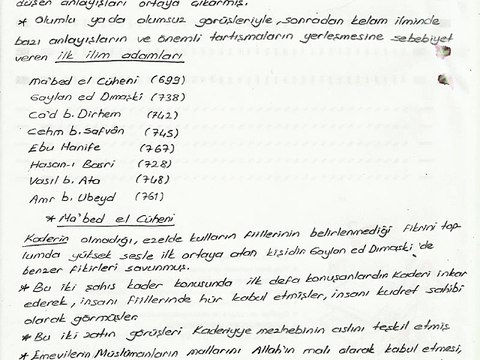 düşen anlayışları ortaya çıkarmış.
* Olumlu ya da olumsuz görüşleriyle, sonradan kelam ilminde
bazı anlayışların ve önemli tartışmaların yerleşmesine sebebiyet
veren ilk ilim adamları
Ma'bed el Cüheni (699)
Gaylan ed Dımaşki (738)
Ca'd b. Dirhem (742)
Cehm b. Safvân (745)
Ebu Hanife (767)
Hasan-ı Basri (728)
Vasıl b. Ata (748)
Amr b. Ubeyd (761)
* Ma'bed el Cüheni
Kaderin olmadığı, ezelde kulların fiillerinin belirlenmediği fikrini top-
lumda yüksek sesle ilk ortaya atan kişidir. Gaylan ed Dımaşki'de
benzer fikirleri savunmuş.
* Bu iki şahıs kader konusunda ilk defa konuşanlardır. Kaderi inkar
ederek, insanı fiillerinde hür kabul etmişler, insanı kudret sahibi
olarak görmüşler.
* Bu iki zatın görüşleri Kaderiyye mezhebinin aslını teşkil etmiş
* Emevilerin Müslümanların mallarını Allah'ın malı olarak kabul etmesi,